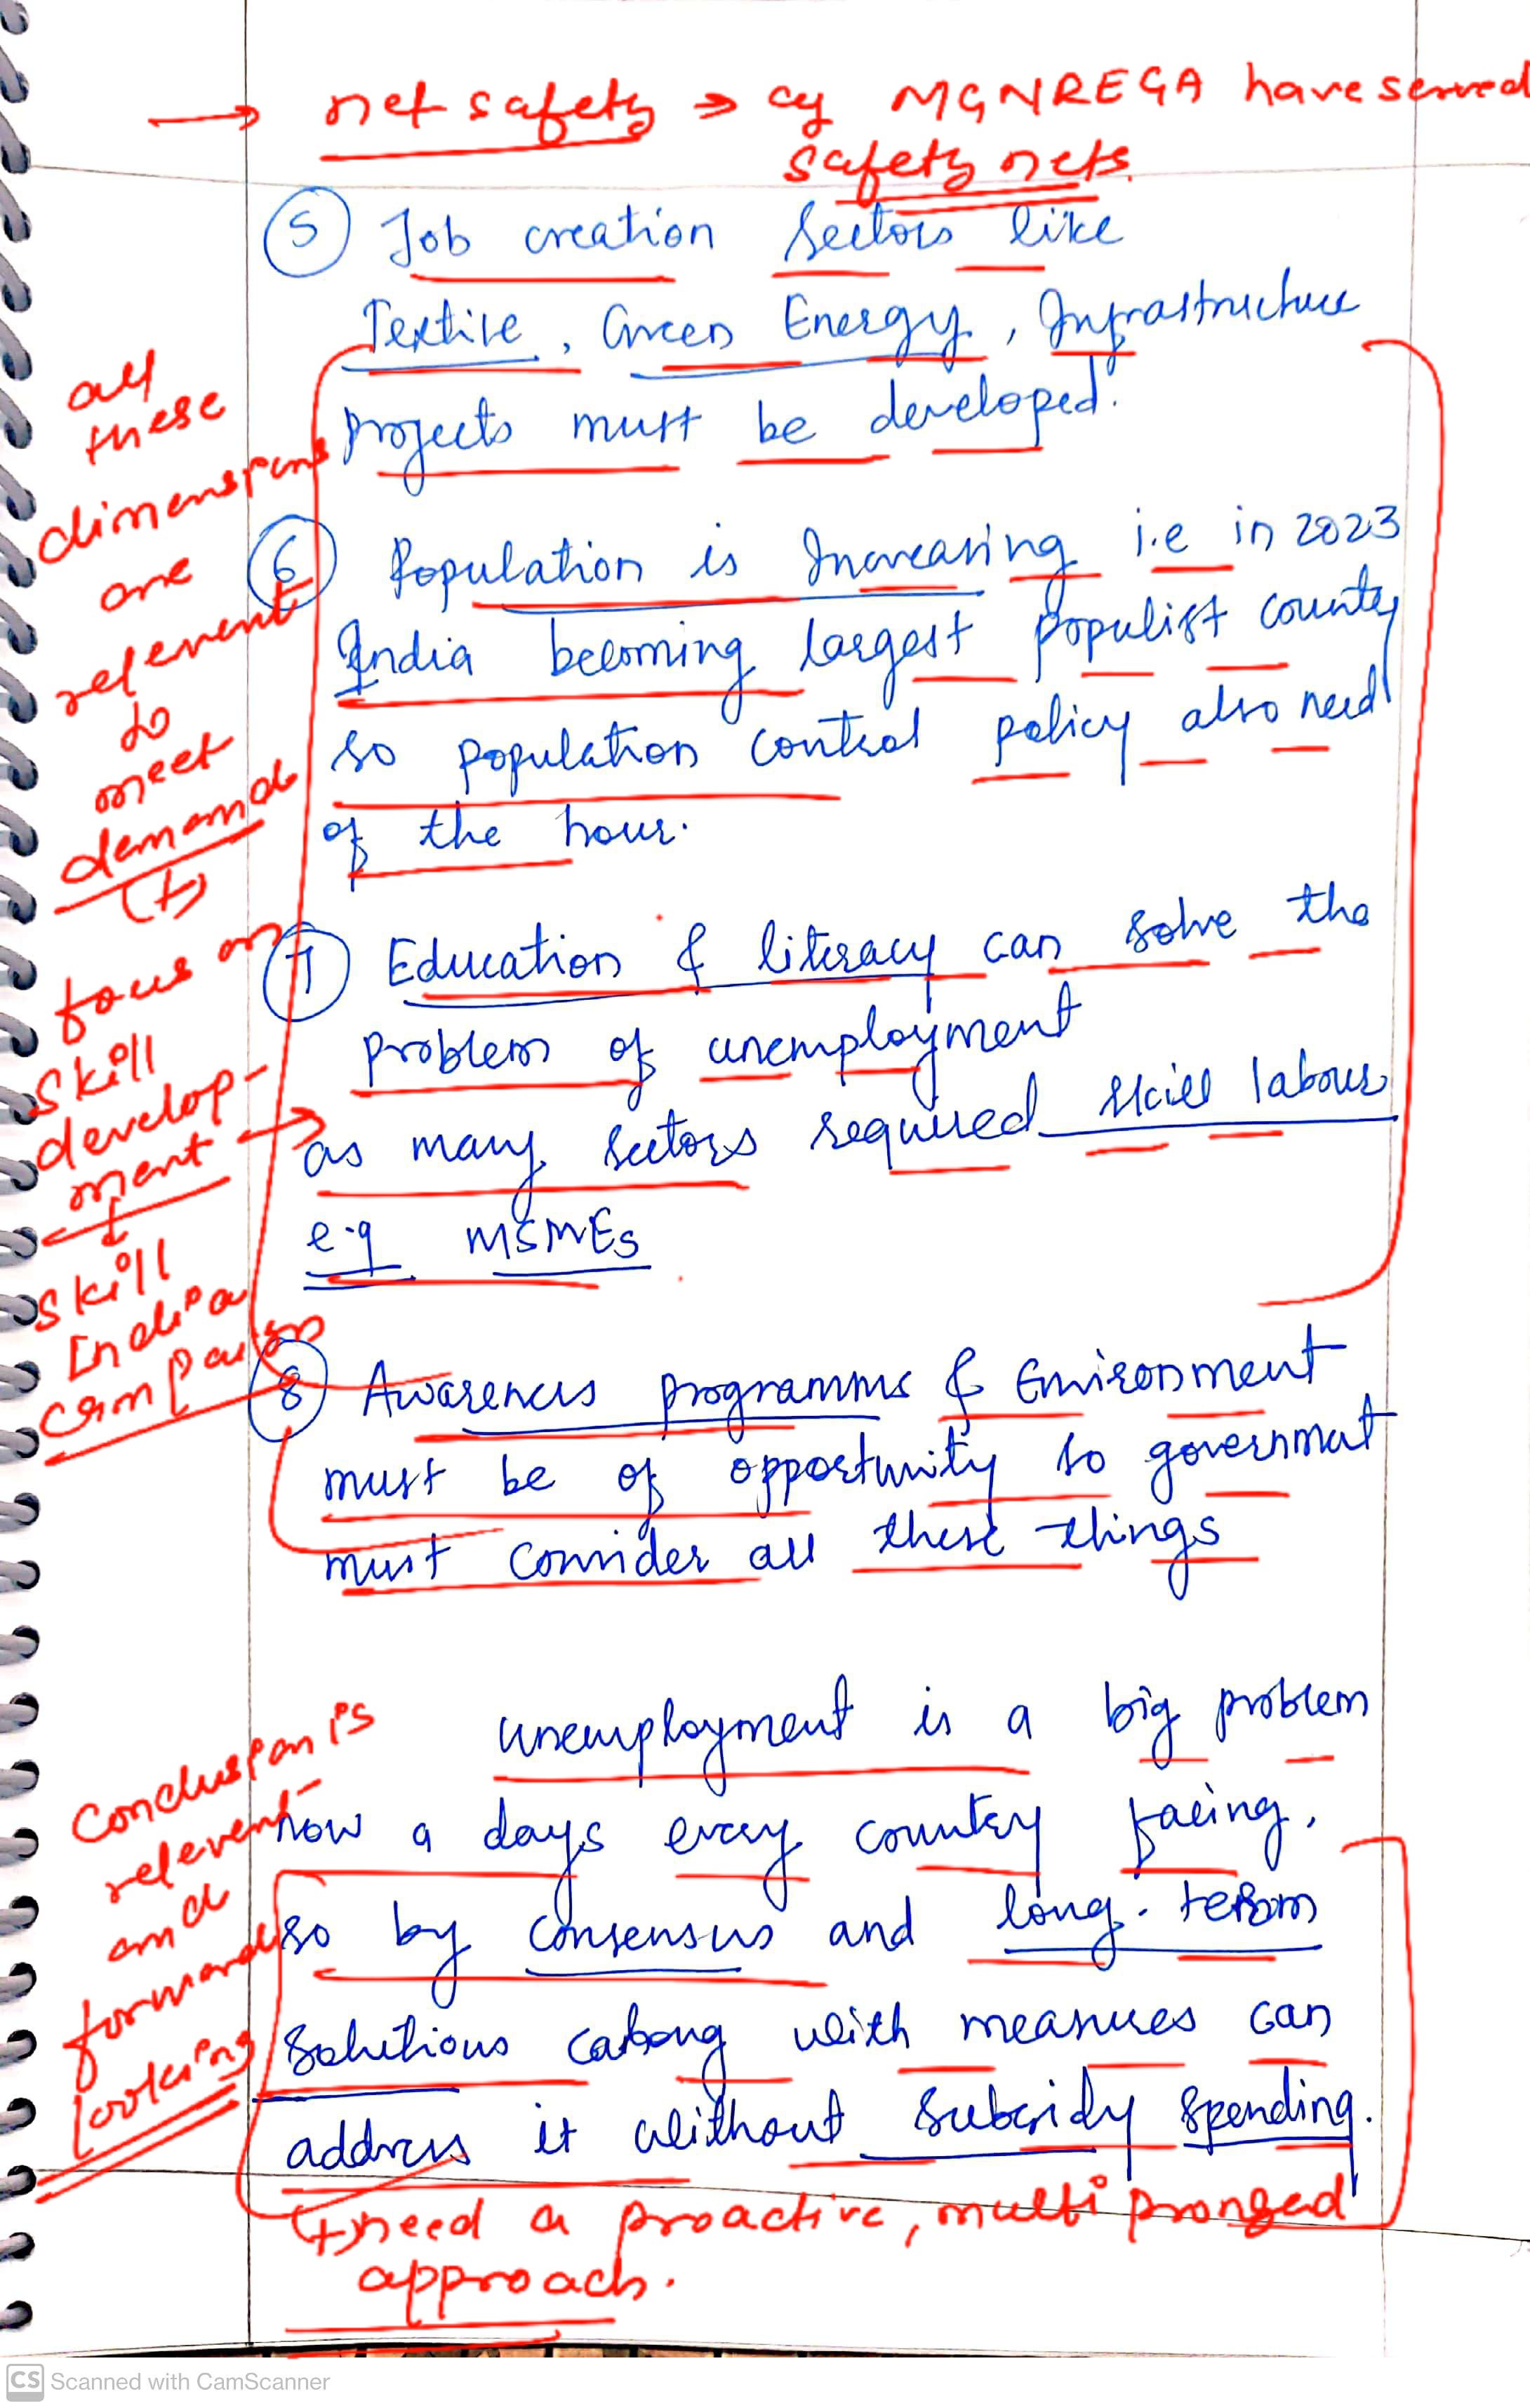 → net safety → eg MGNREGA have served
safety nets
5 Job creation sectors like
Textile, Green Energy, Infrastructure
projects must be developed.
6 Population is Increasing i.e in 2023
India becoming largest populist country
so population control policy also need
of the hour.
7 Education & literacy can solve the
problem of unemployment
as many sectors required skill labour
e.g MSMEs
8 Awareness programms & Environment
must be of opportunity so government
must consider all these things
unemployment is a big problem
now a days every country facing,
so by consensus and long-term
solutions with measures can
address it without subsidy spending.
need a proactive, multi pronged
approach.
all
these
dimensions
are
relevent
to
meet
demand
(+)
focus on
skill
develop-
ment →
skill
India
campaign
Conclusion is
relevent
and
forward
looking
CS Scanned with CamScanner